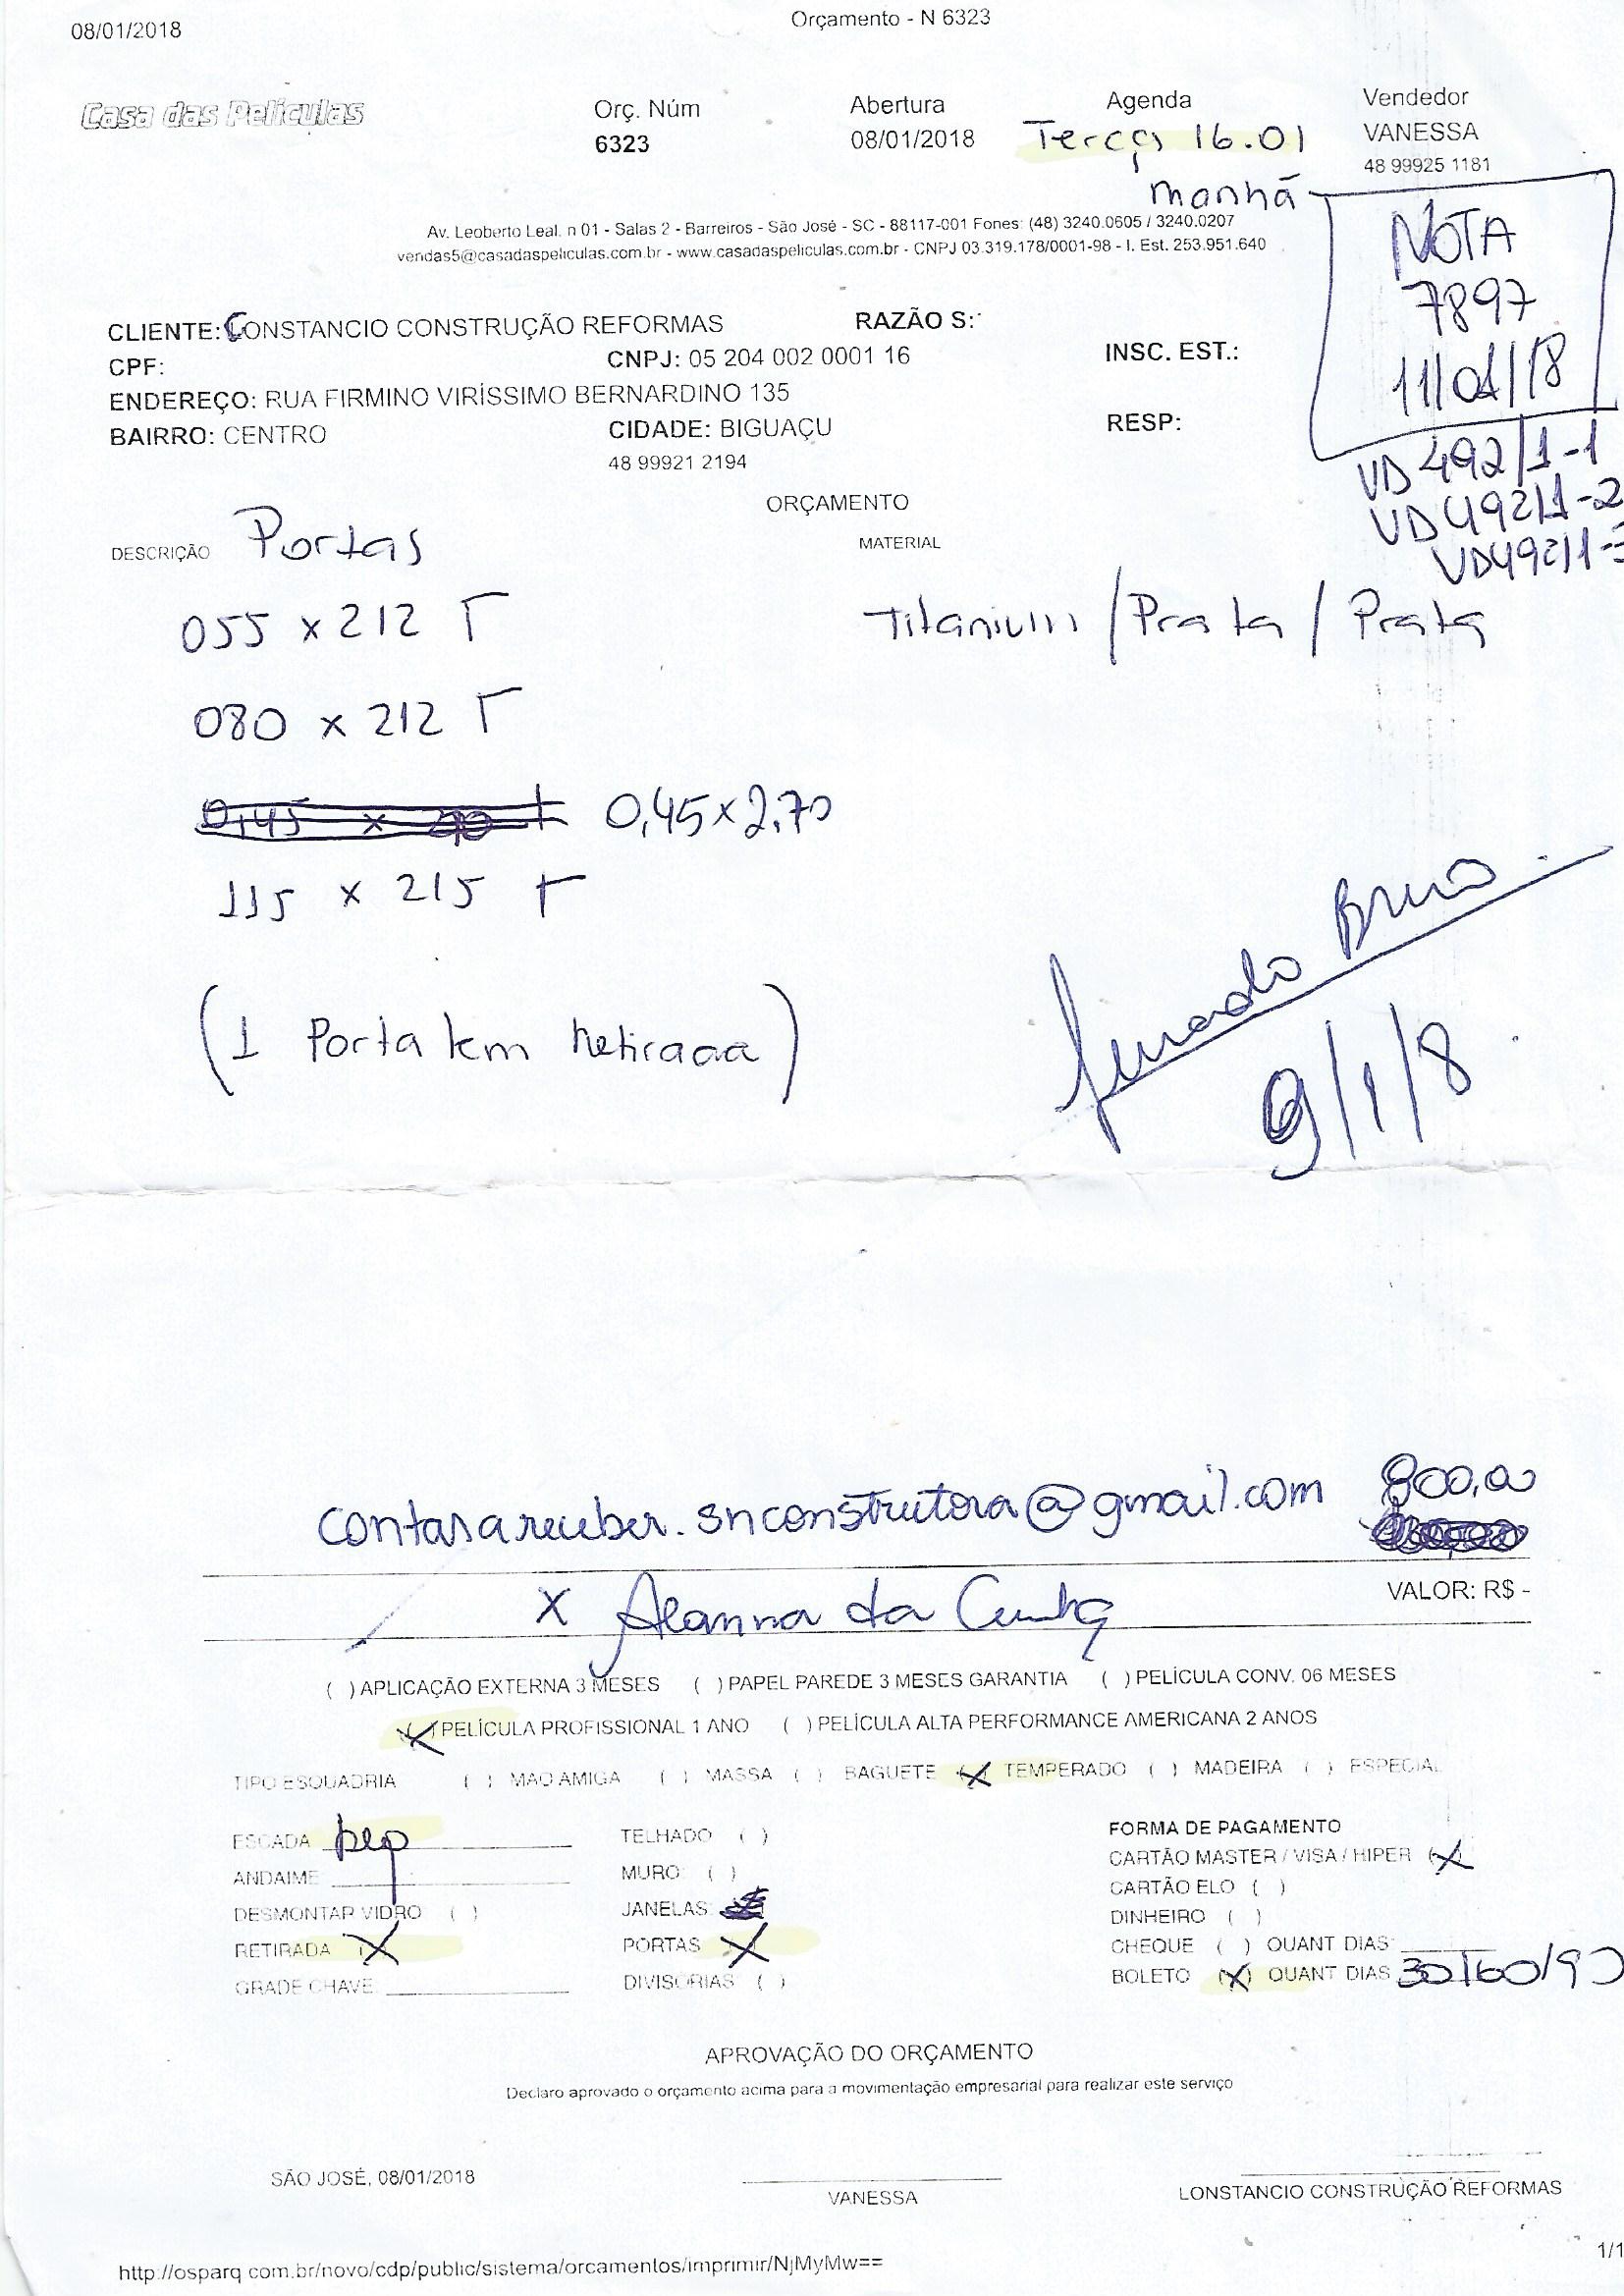 08/01/2018
Orçamento - N 6323
Casa das Películas
Orç. Núm
6323
Abertura
08/01/2018
Agenda
Terça 16.01
manhã
Vendedor
VANESSA
48 99925 1181
NOTA
7897
11/01/18
VD 492/1-1
VD 492/1-2
VD492/1-3
Av. Leoberto Leal. n 01 - Salas 2 - Barreiros - São José - SC - 88117-001 Fones: (48) 3240.0605 / 3240.0207
vendas5@casadaspeliculas.com.br - www.casadaspeliculas.com.br - CNPJ 03.319.178/0001-98 - I. Est. 253.951.640
CLIENTE: CONSTANCIO CONSTRUÇÃO REFORMAS RAZÃO S:
CPF: CNPJ: 05 204 002 0001 16 INSC. EST.:
ENDEREÇO: RUA FIRMINO VIRÍSSIMO BERNARDINO 135
BAIRRO: CENTRO CIDADE: BIGUAÇU RESP:
48 99921 2194
ORÇAMENTO
DESCRIÇÃO Portas MATERIAL
055 x 212 T Titanium / Prata / Prata
080 x 212 T
0,45 x 2,70
115 x 215 T
(1 Porta tem Retirada)
9/1/8
contasareceber.snconstrutora@gmail.com 800,00
VALOR: R$ -
x Alanna da Cunha
( ) APLICAÇÃO EXTERNA 3 MESES ( ) PAPEL PAREDE 3 MESES GARANTIA ( ) PELÍCULA CONV. 06 MESES
(X) PELÍCULA PROFISSIONAL 1 ANO ( ) PELÍCULA ALTA PERFORMANCE AMERICANA 2 ANOS
TIPO ESQUADRIA ( ) MAO AMIGA ( ) MASSA ( ) BAGUETE (X) TEMPERADO ( ) MADEIRA ( ) ESPECIAL
ESCADA TELHADO ( ) FORMA DE PAGAMENTO
ANDAIME MURO: ( ) CARTÃO MASTER / VISA / HIPER (X)
DESMONTAR VIDRO ( ) JANELAS: CARTÃO ELO ( )
RETIRADA (X) PORTAS X DINHEIRO ( )
GRADE CHAVE: DIVISORIAS ( ) CHEQUE ( ) QUANT DIAS:
BOLETO (X) QUANT DIAS 30/60/90
APROVAÇÃO DO ORÇAMENTO
Declaro aprovado o orçamento acima para a movimentação empresarial para realizar este serviço
SÃO JOSÉ, 08/01/2018
VANESSA
LONSTANCIO CONSTRUÇÃO REFORMAS
http://osparq.com.br/novo/cdp/public/sistema/orcamentos/imprimir/NjMyMw==
1/1